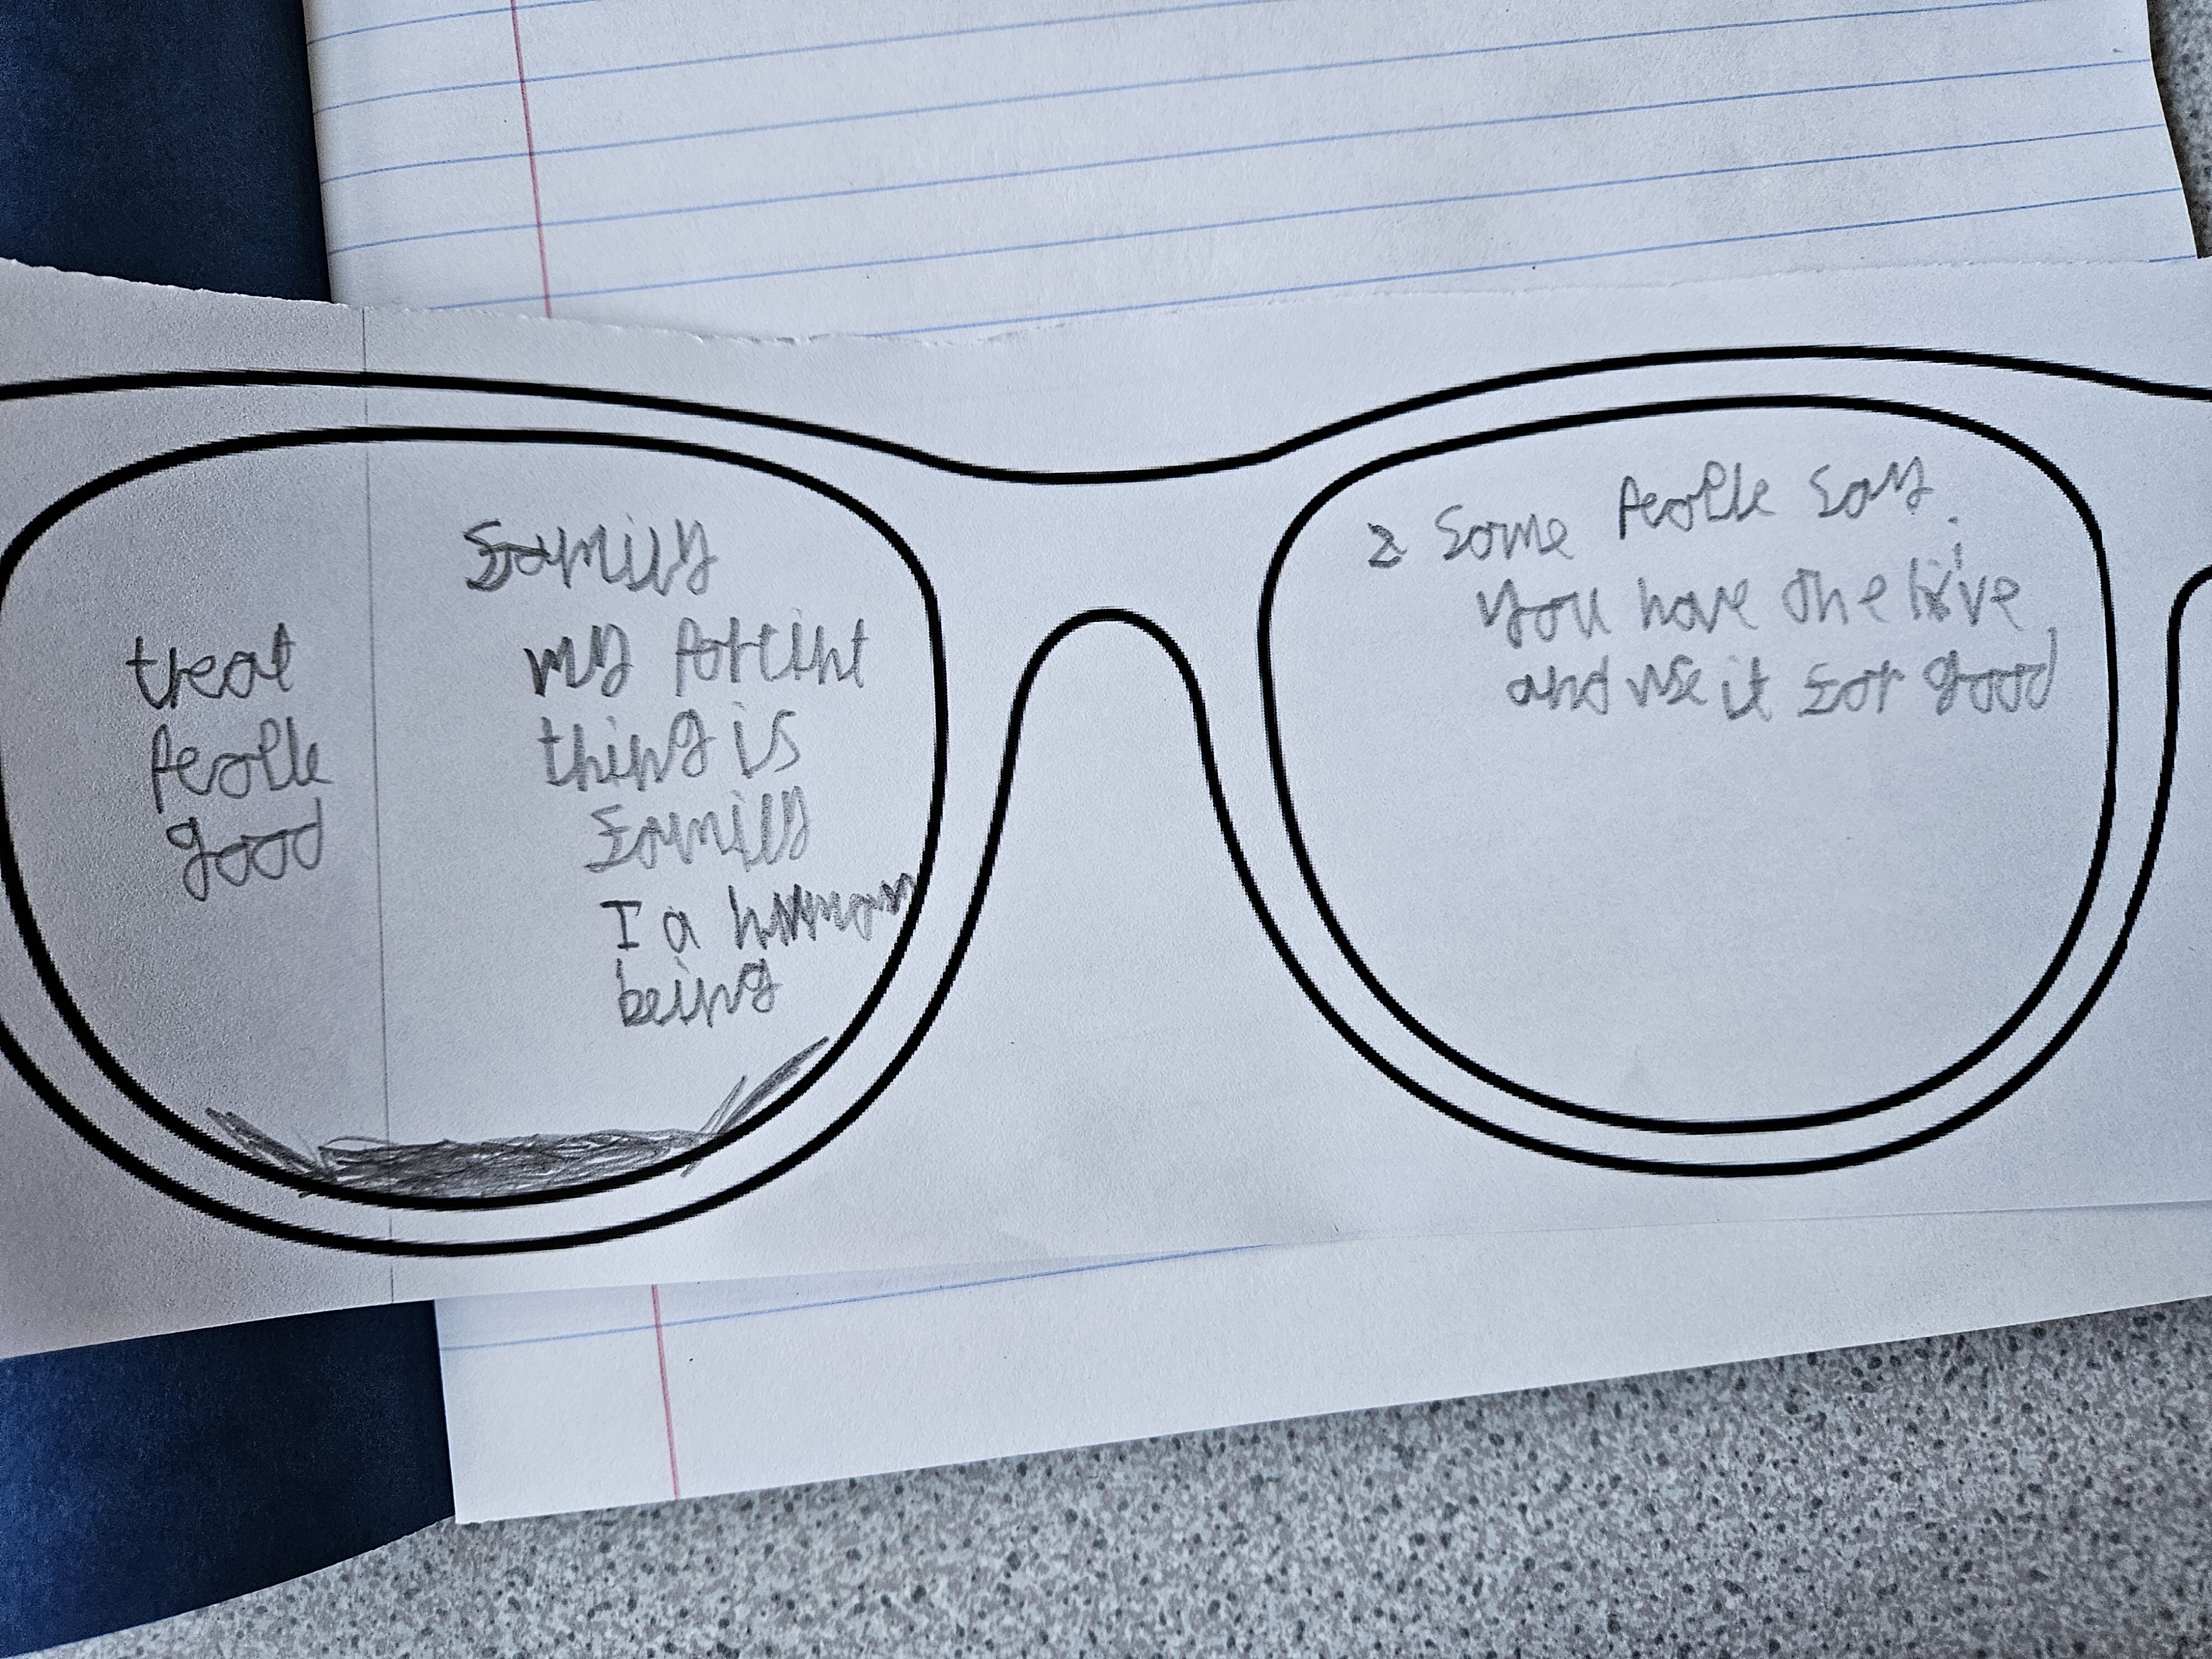 treat
People
good
Family
my Portint
thing is
Family
I a human
being
2 Some People say
you have one live
and use it for good